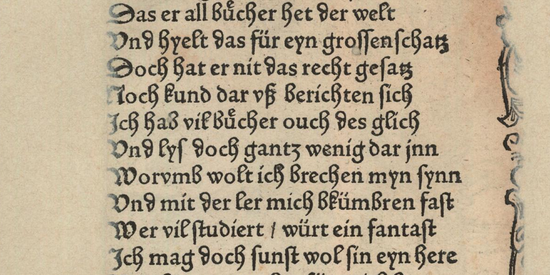 Das er all buͤcher het der welt
Vnd hyelt das für eyn grossen schatz
Doch hat er nit das recht gesatz
Noch kund dar vß berichten sich
Ich hab vil buͤcher ouch des glich
Vnd lys doch gantz wenig dar jnn
Worvmb wolt ich brechen myn synn
Vnd mit der ler mich bkümbren fast
Wer vil studiert / würt ein fantast
Ich mag doch sunst wol sin eyn here